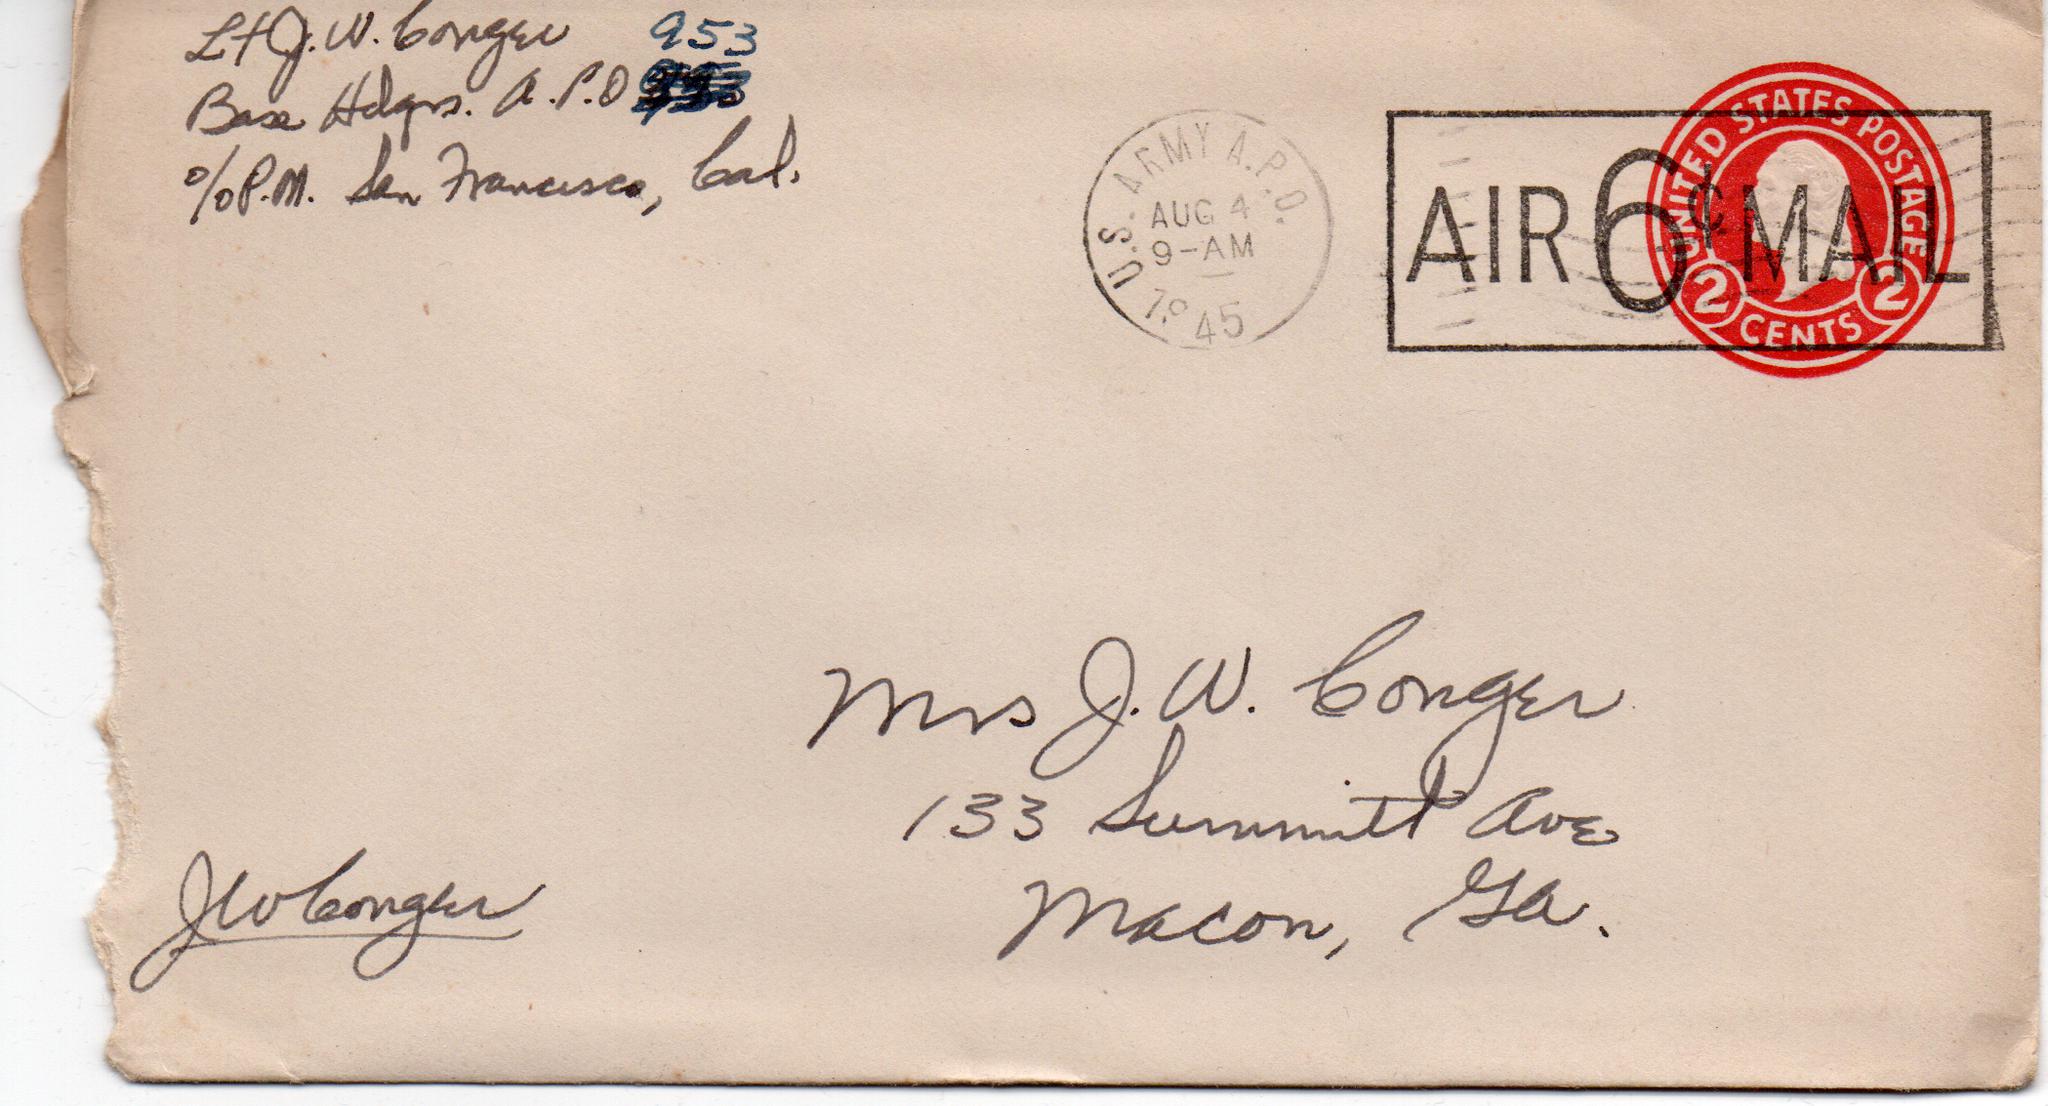 Lt J. W. Conger 953
Base Hdqrs. A.P.O
c/o P.M. San Francisco, Cal.
U.S. ARMY A.P.O.
AUG 4
9-AM
45
AIR 6¢ MAIL
UNITED STATES POSTAGE
2 CENTS 2
Mrs J. W. Conger
133 Summitt Ave
Macon, Ga.
JWConger